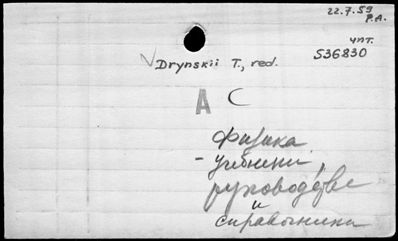 22.7.59
P.A.
чит.
536830
Drynskii T., red.
A C
Физика
- учебники,
руководства
и
справочники